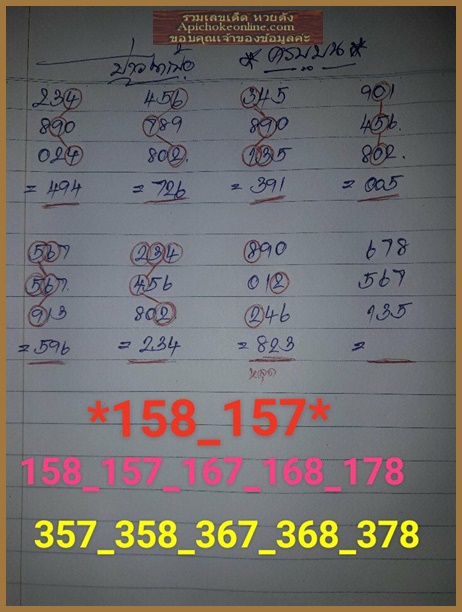 รวมเลขเด็ด หวยดัง
Apichokeonline.com
ขอบคุณเจ้าของข้อมูลค่ะ
* ครบบน *
234 456 345 901
890 789 890 456.
024 802. 135 802.
= 494 = 726 = 391 = 005
567 234 890 678
567. 456 012 567
913 802 246 135
= 596 = 234 = 823 =
หลุด
*158_157*
158_157_167_168_178
357_358_367_368_378